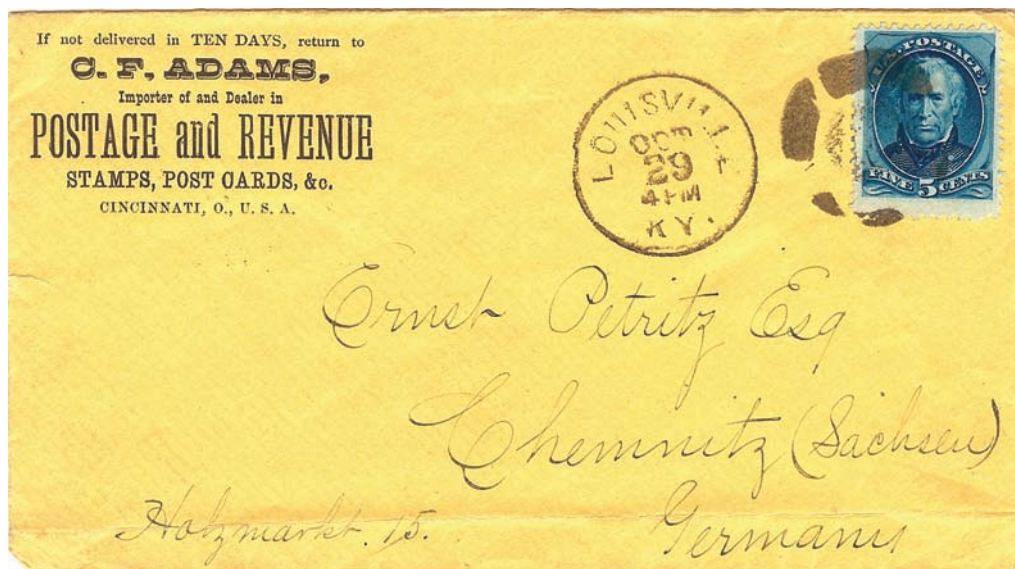 If not delivered in TEN DAYS, return to
C. F. ADAMS,
Importer of and Dealer in
POSTAGE and REVENUE
STAMPS, POST CARDS, &c.
CINCINNATI, O., U. S. A.
LOUISVILLE
OCT
29
4 PM
KY.
U.S. POSTAGE
FIVE 5 CENTS
Ernst Petritz Esq
Chemnitz (Sachsen)
Holzmarkt. 15.
Germany